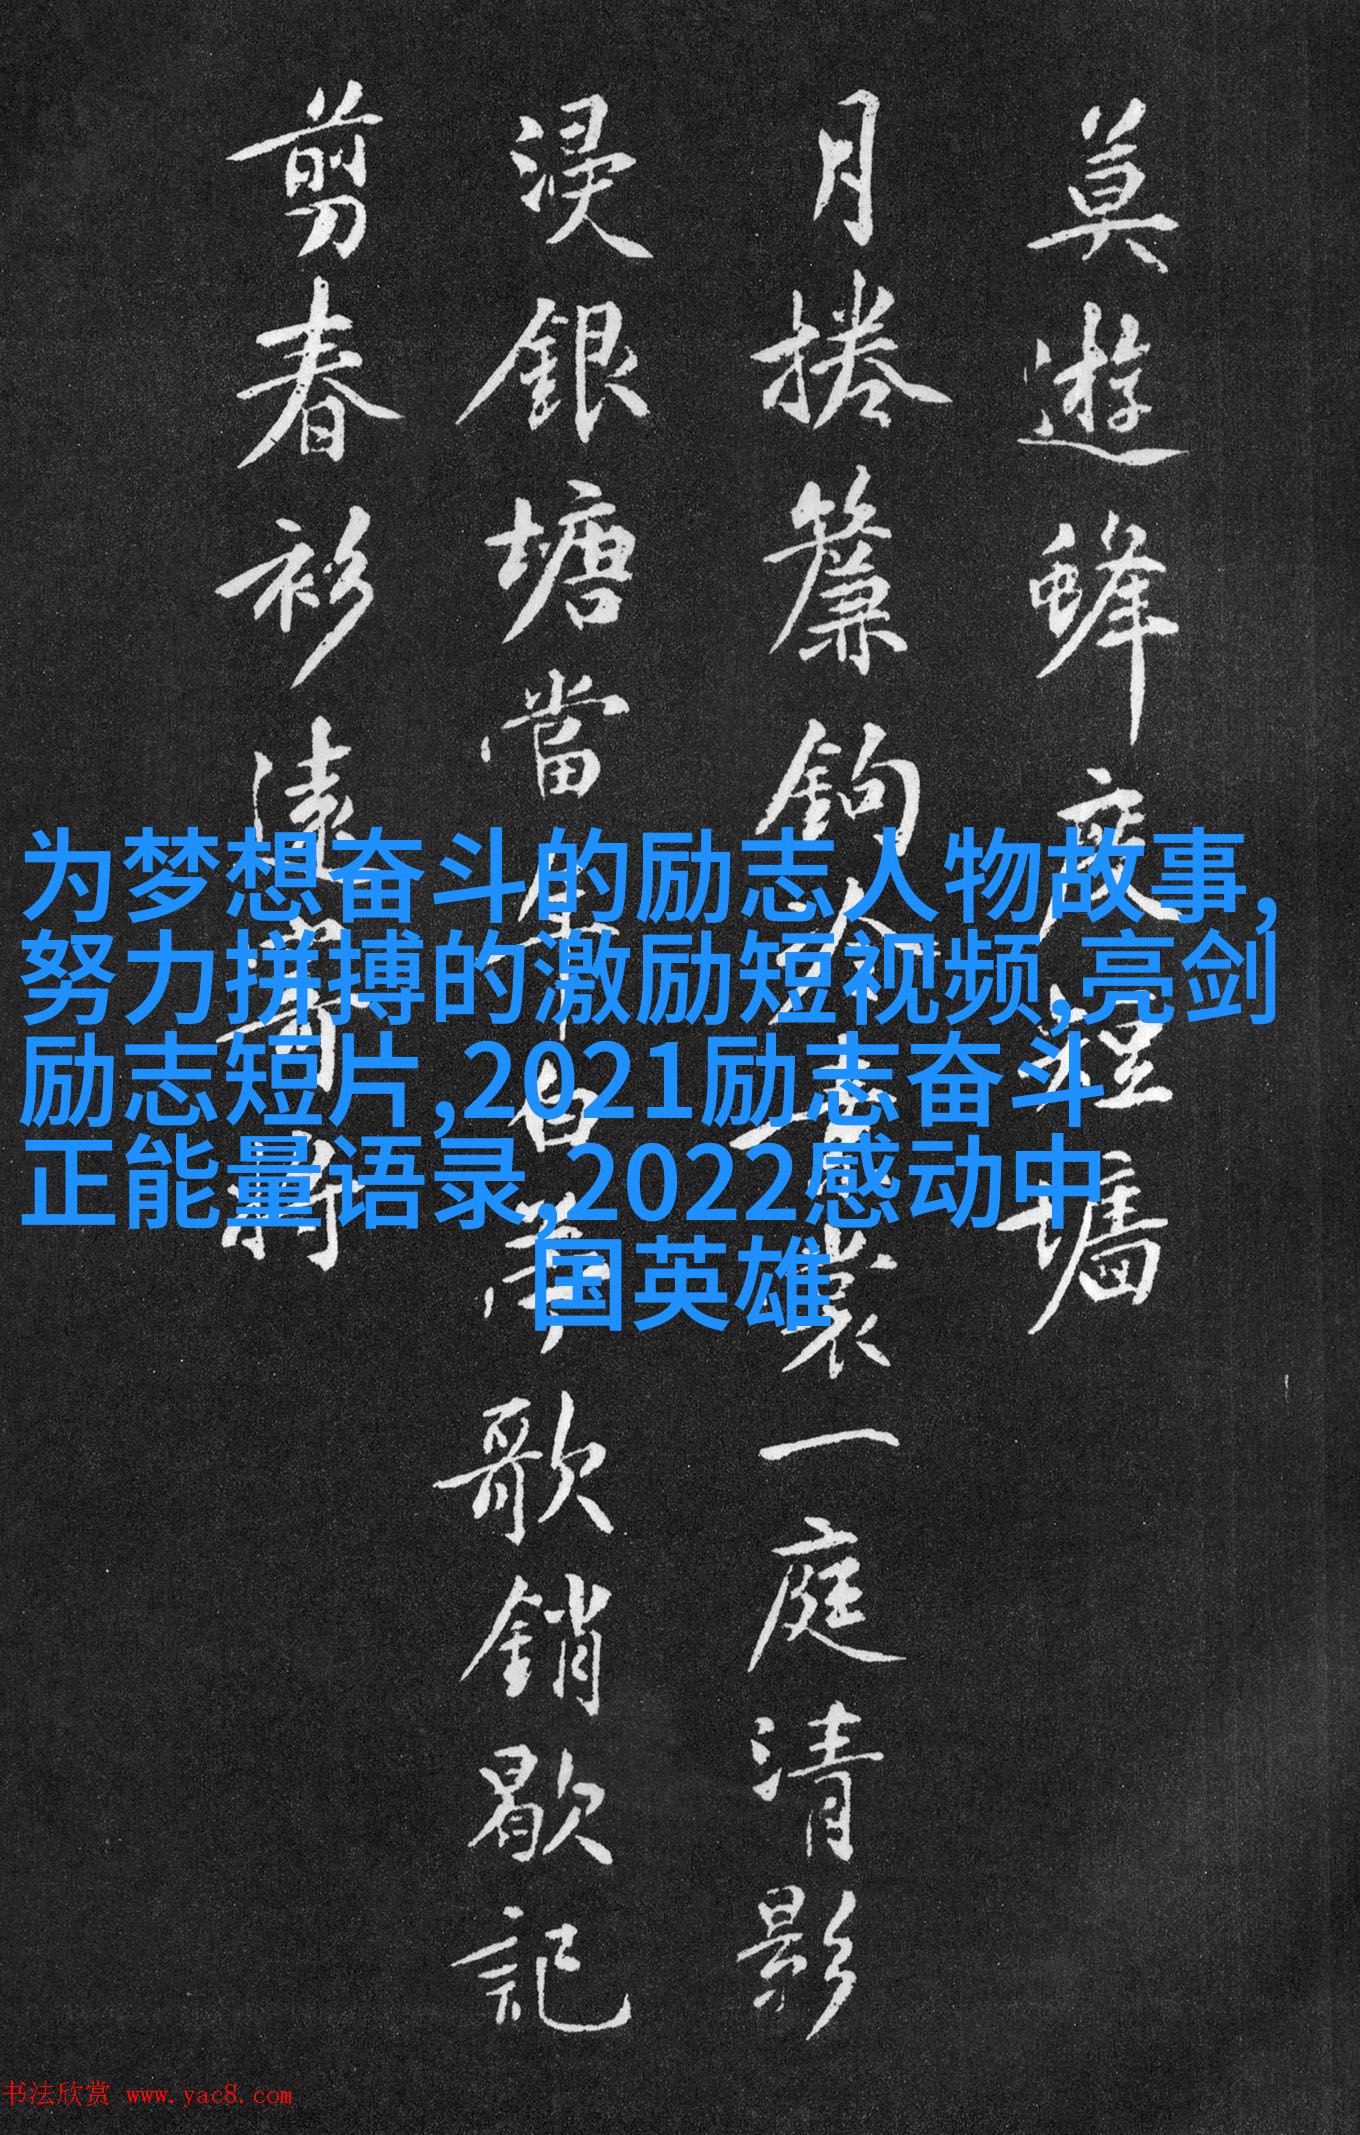 莫遊蜂度短墻
月捲簾鉤人裳一庭清影
浸銀塘當年白苧歌銷歇記
剪春衫遠寄將
为梦想奋斗的励志人物故事,
努力拼搏的激励短视频,亮剑
励志短片,2021励志奋斗
正能量语录,2022感动中
国英雄
书法欣赏 www.yac8.com